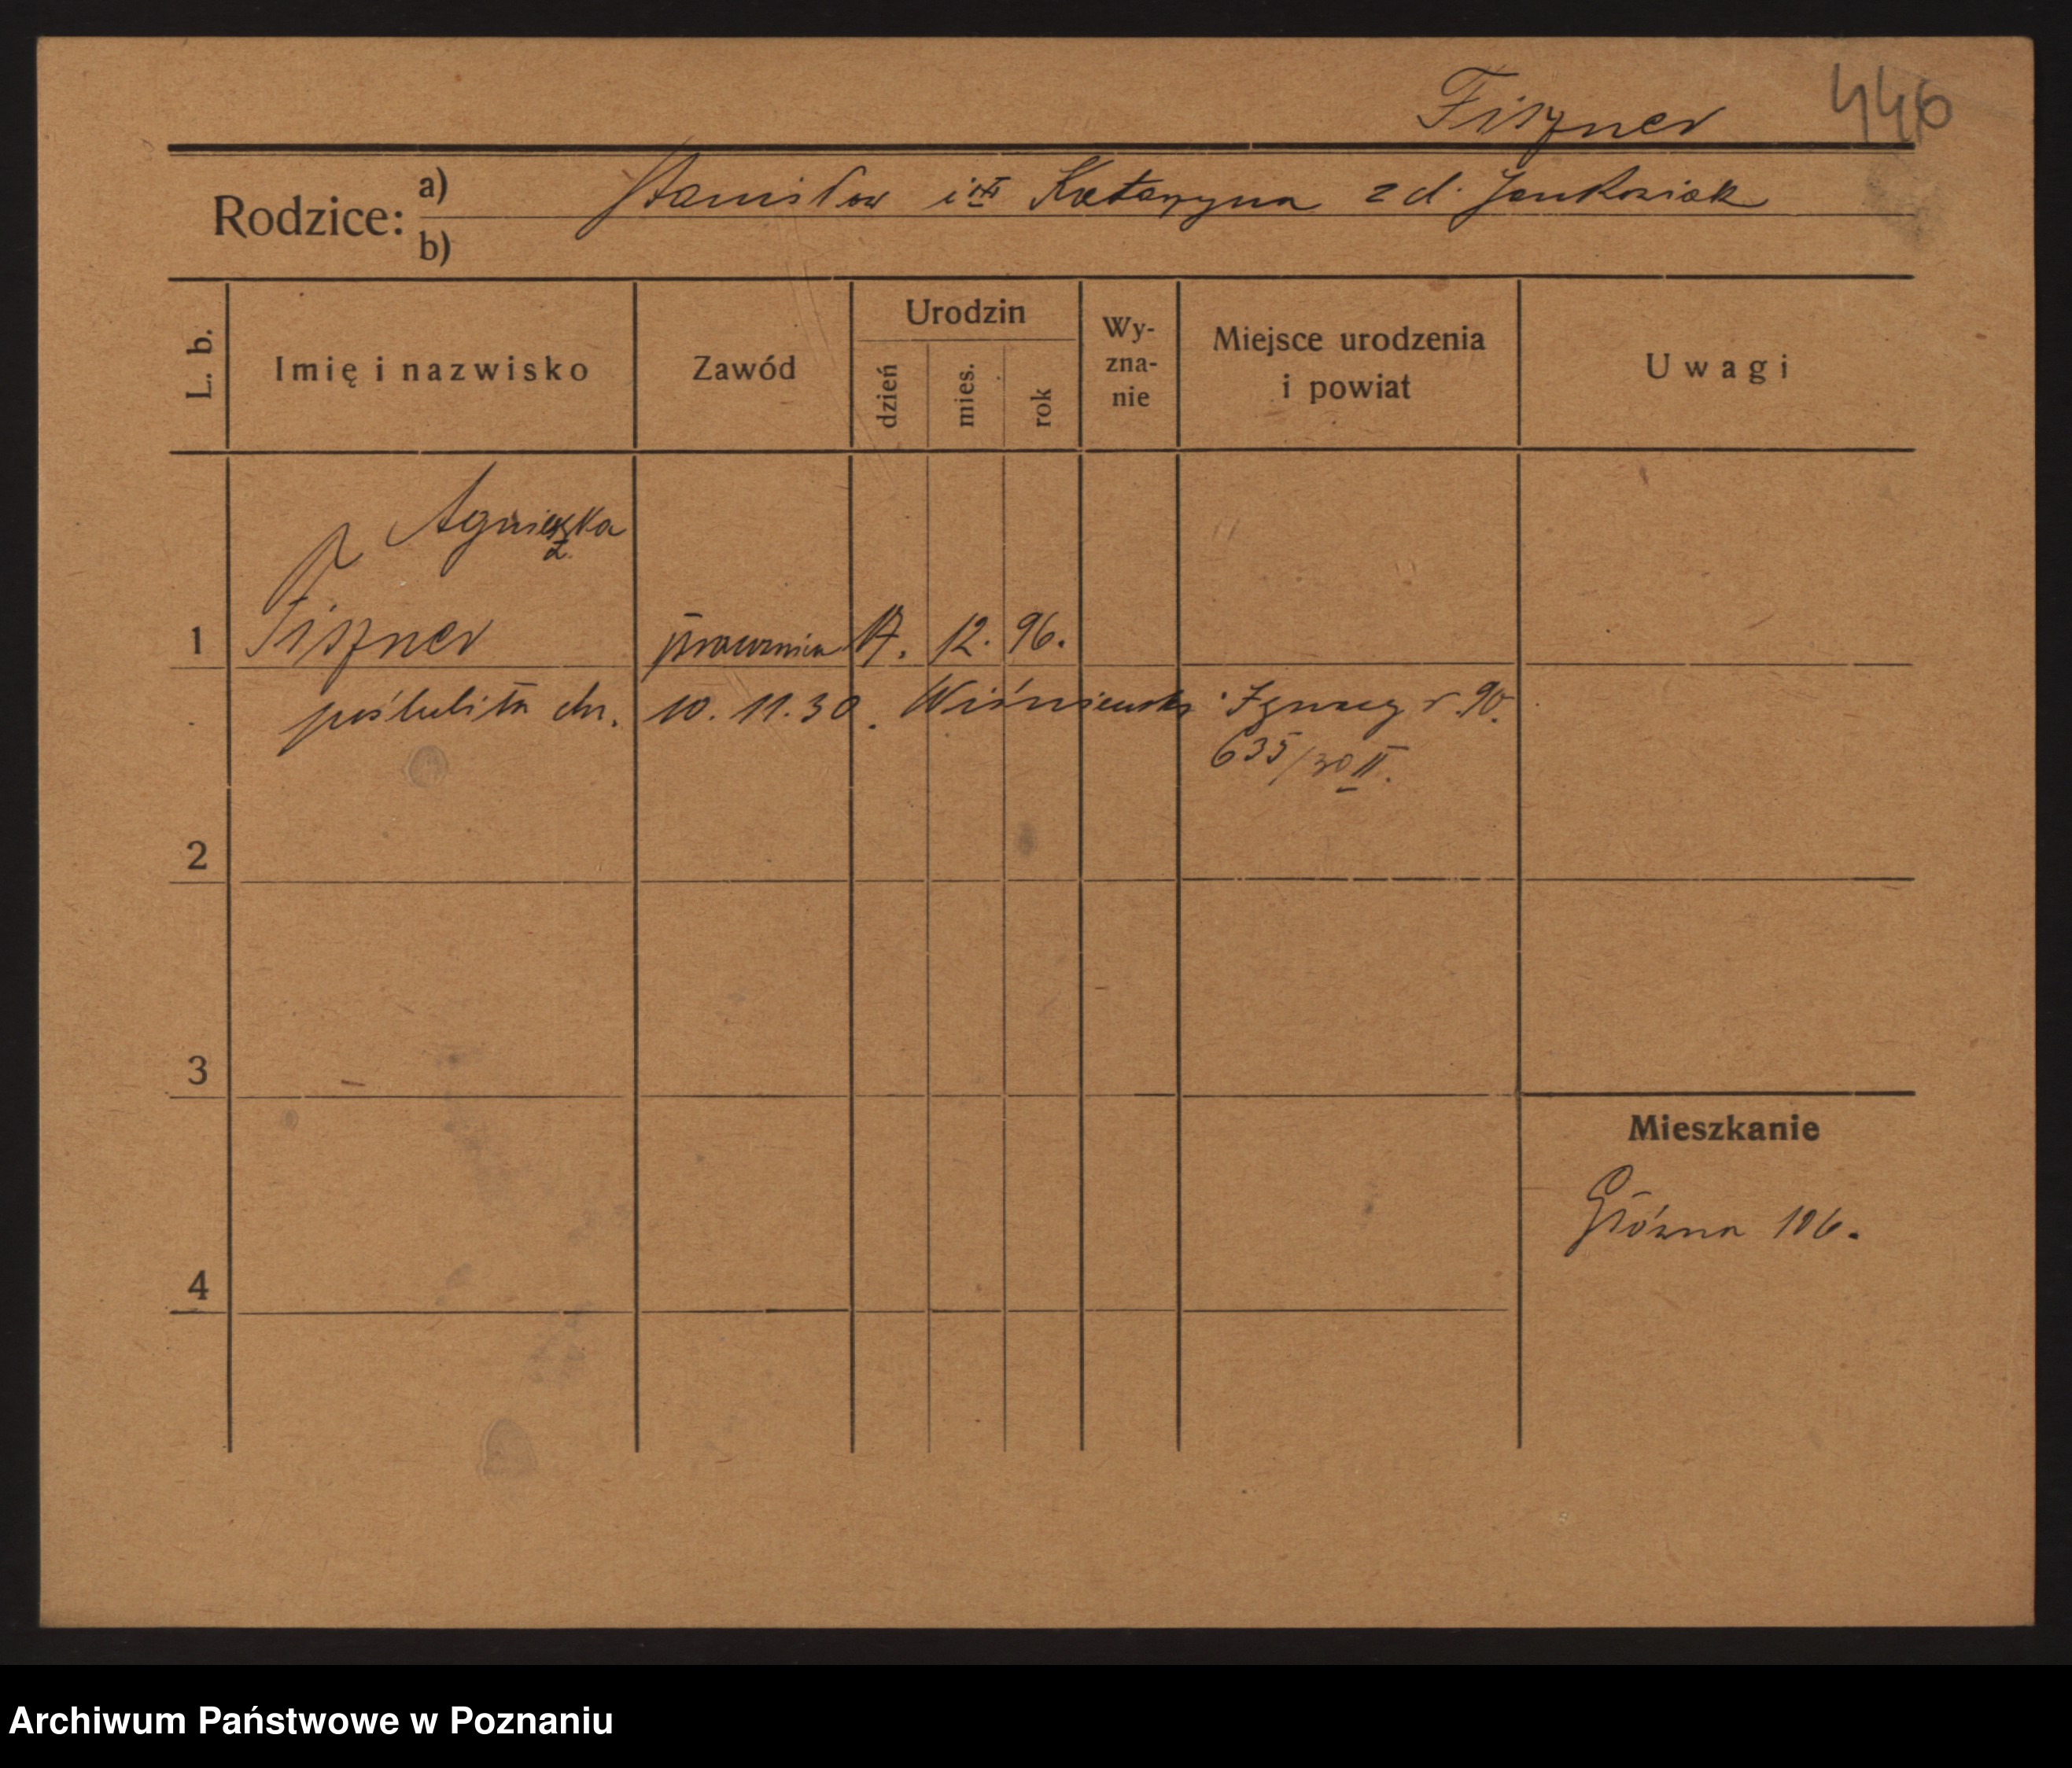 Fiszner 446
Rodzice: a) Stanisław i Katarzyna z d. Jankowiak
b)
L. b. Imię i nazwisko Zawód Urodzin dzień mies. rok Wy-zna-nie Miejsce urodzenia i powiat Uwagi
Agnieszka
1 Fiszner 17. 12. 96.
poślubiła dn. 10. 11. 30. Wiśniewski Ignacy r. 90.
635/30 II.
2
3
Mieszkanie
Główna 106.
4
Archiwum Państwowe w Poznaniu